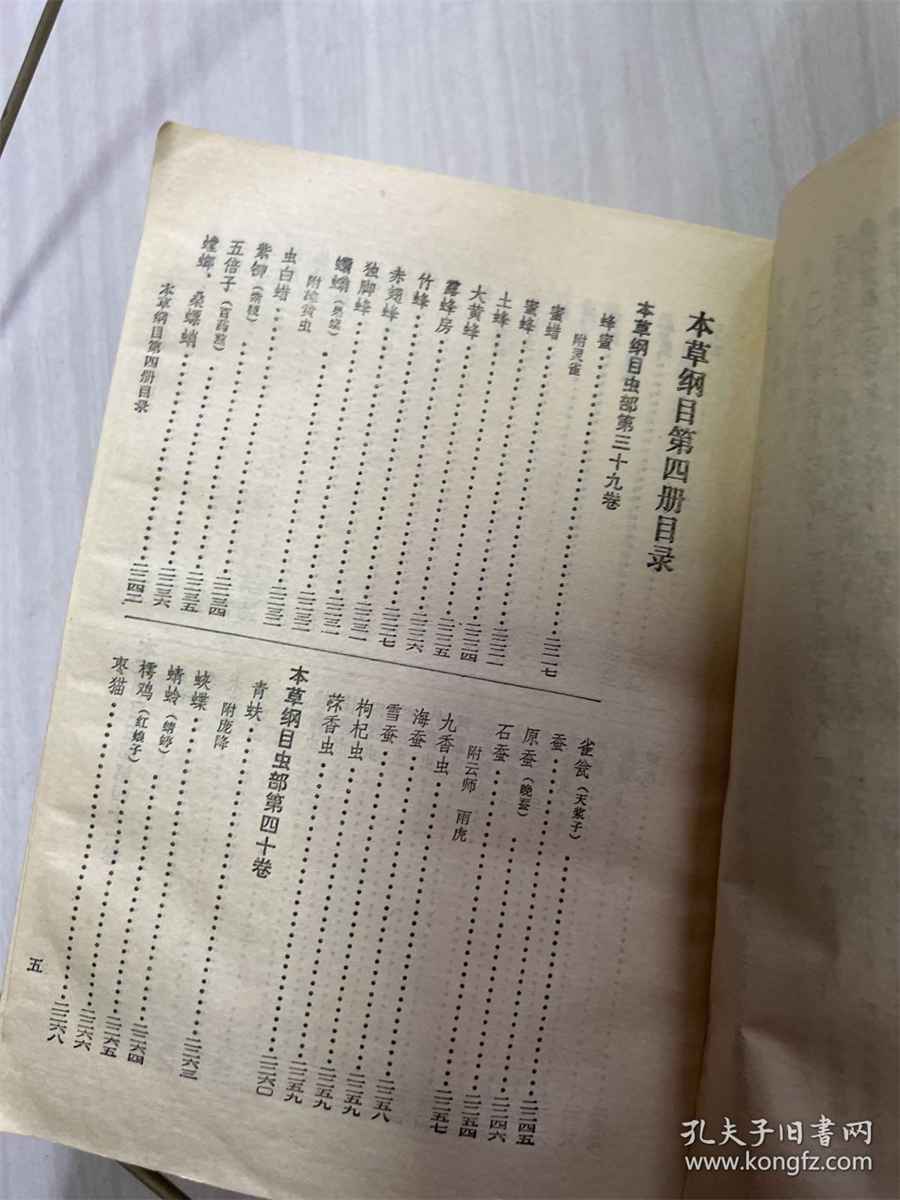 本草纲目第四册目录
本草纲目虫部第三十九卷
蜂蜜……二二一七
附灵雀
蜜蜡……二二二一
蜜蜂……二二二四
土蜂……二二二五
大黄蜂……二二二六
露蜂房……二二二七
竹蜂……二二三一
赤翅蜂……二二三一
独脚蜂……二二三二
蠮螉(果蠃)……二二三二
附雄黄虫
虫白蜡……二二三四
紫铆(紫梗)……二二三五
五倍子(百药煎)……二二三六
螳螂、桑螵蛸……二二四二
本草纲目第四册目录
雀瓮(天浆子)……二二四五
蚕……二二四六
原蚕(晚蚕)……二二五四
石蚕……二二五七
附云师 雨虎
九香虫……二二五八
海蚕……二二五九
雪蚕……二二五九
枸杞虫……二二五九
蘹香虫……二二六〇
本草纲目虫部第四十卷
青蚨……二二六三
附庞降
蛱蝶……二二六四
蜻蛉(蜻蜓)……二二六五
樗鸡(红娘子)……二二六六
枣猫……二二六八
五
孔夫子旧书网
www.kongfz.com